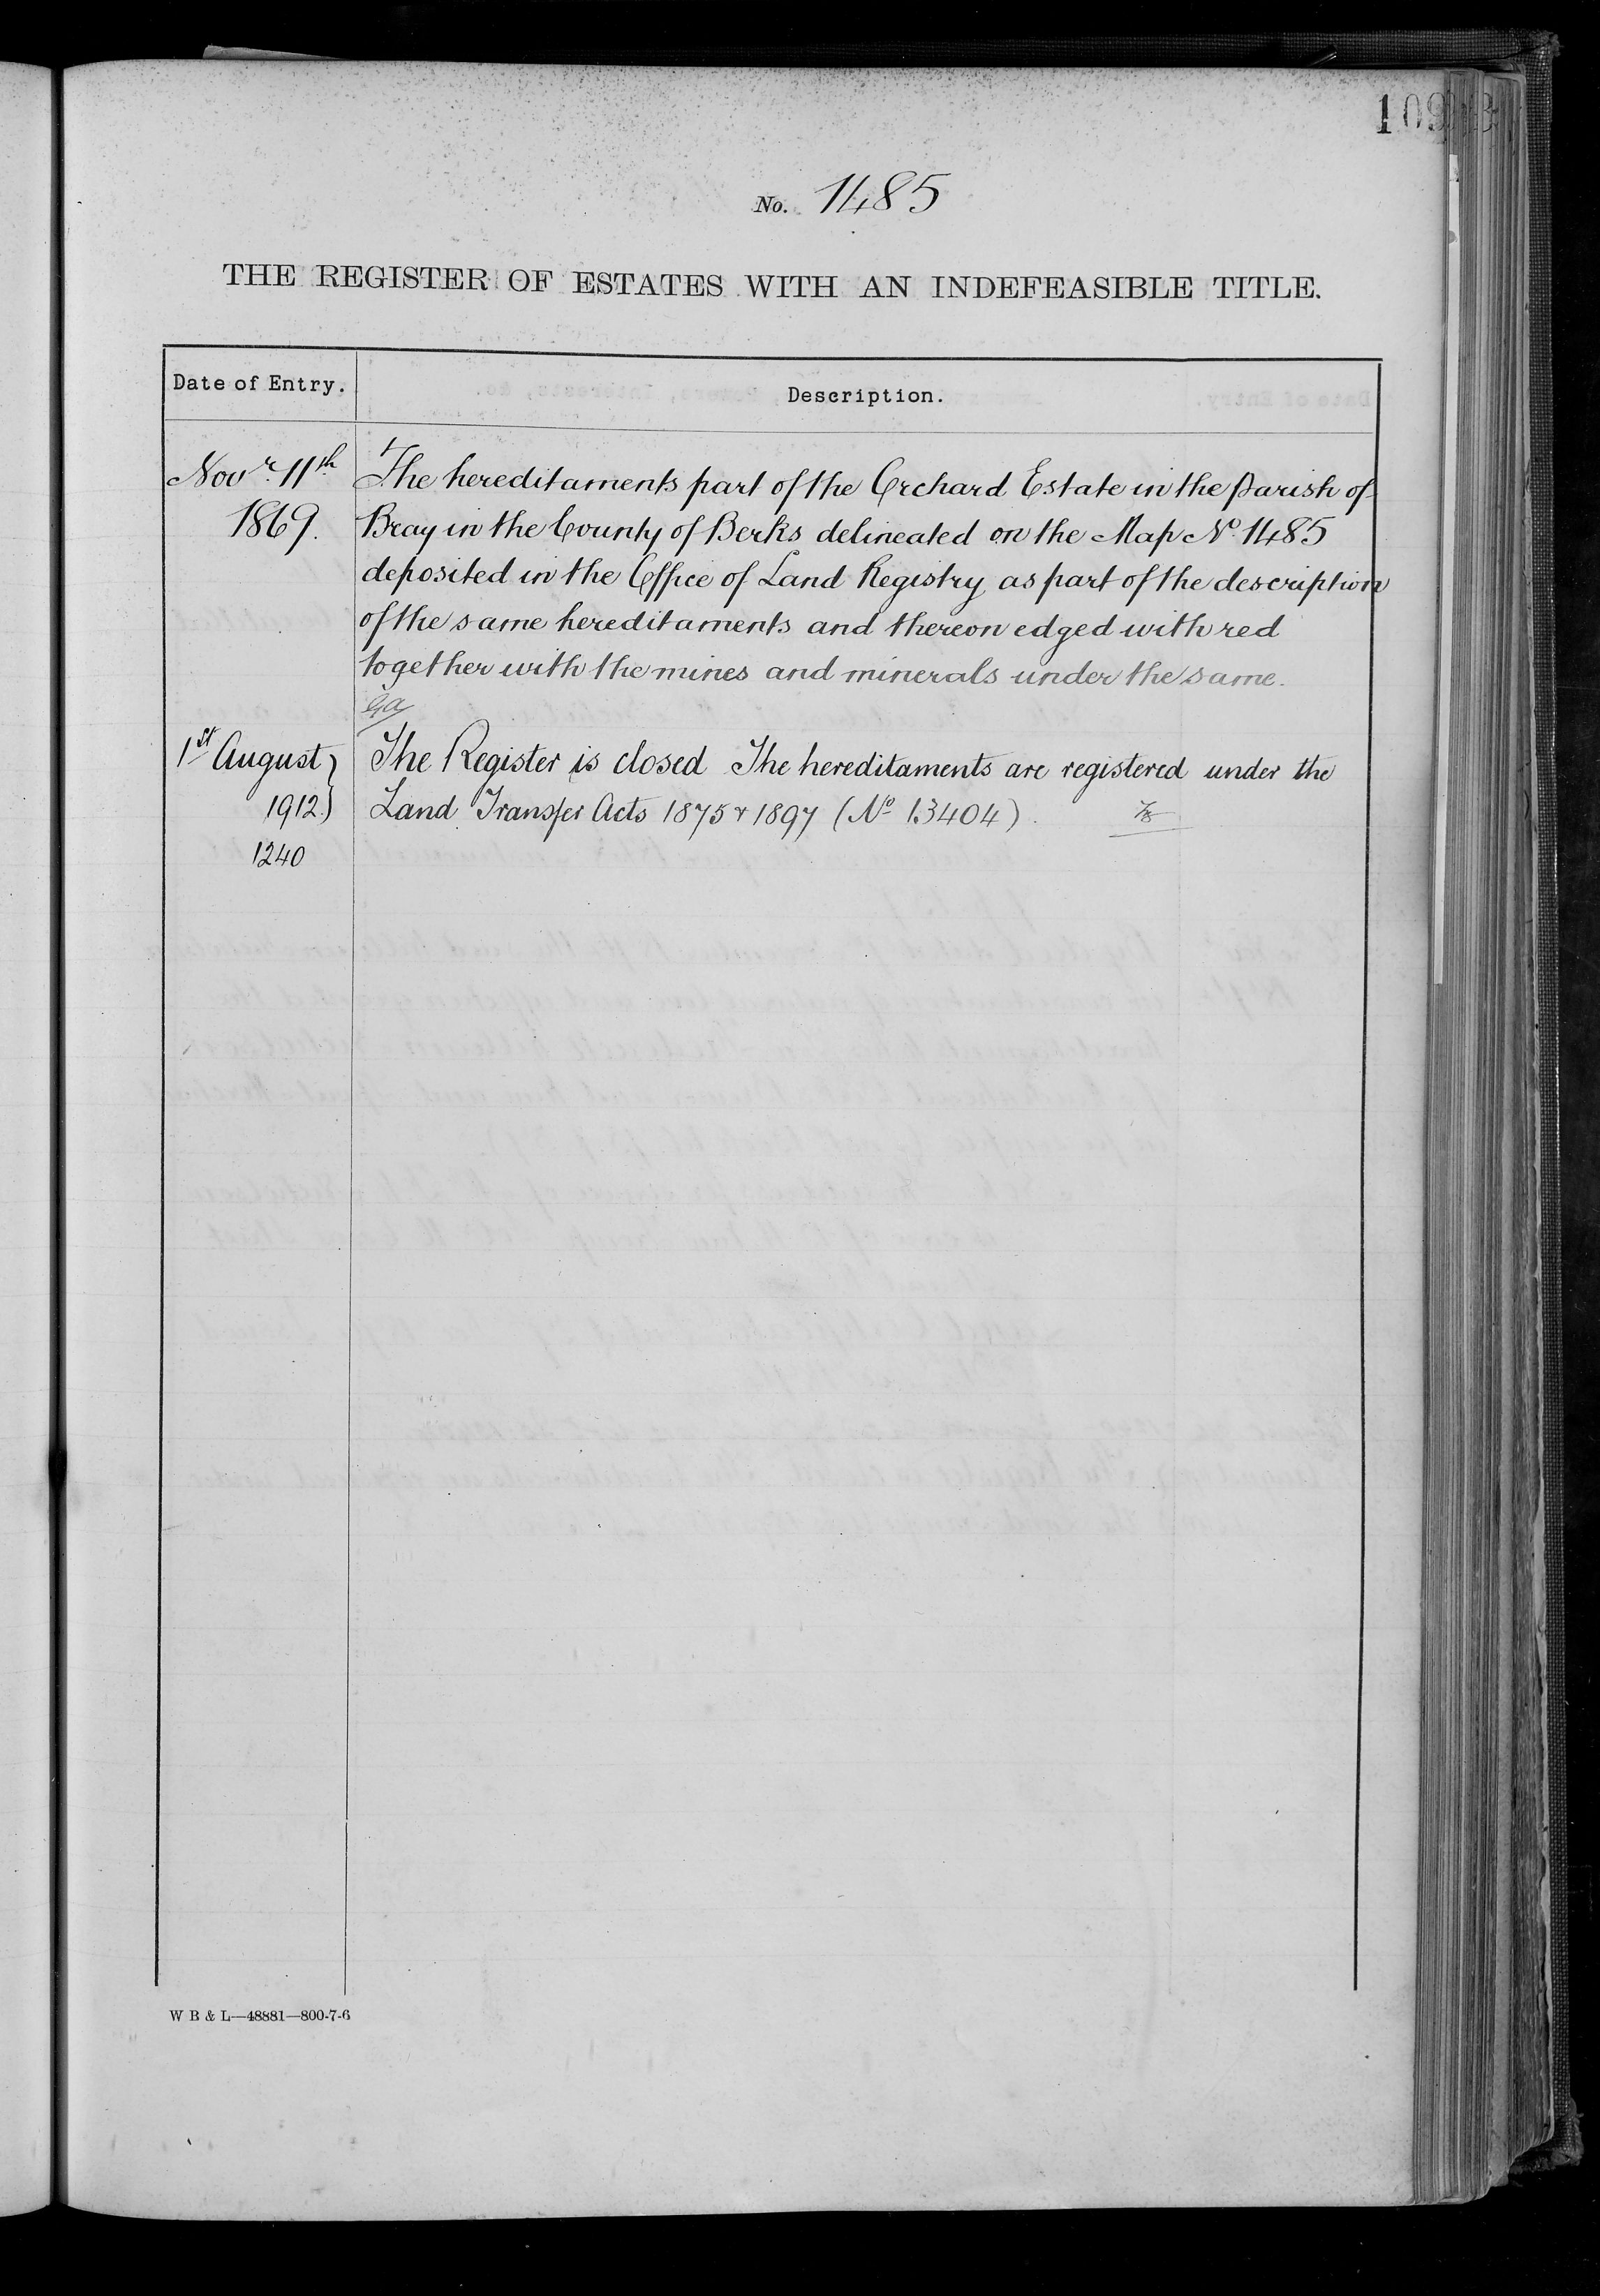 109
No. 1485
THE REGISTER OF ESTATES WITH AN INDEFEASIBLE TITLE.
Date of Entry.
Description.
Novr. 11th
1869.
The hereditaments part of the Orchard Estate in the Parish of
Bray in the County of Berks delineated on the Map No. 1485
deposited in the Office of Land Registry as part of the description
of the same hereditaments and thereon edged with red
together with the mines and minerals under the same.
1st August
1912.
1240
The Register is closed The hereditaments are registered under the
Land Transfer Acts 1875 & 1897 (No 13404).
W B & L—48881—800-7-6